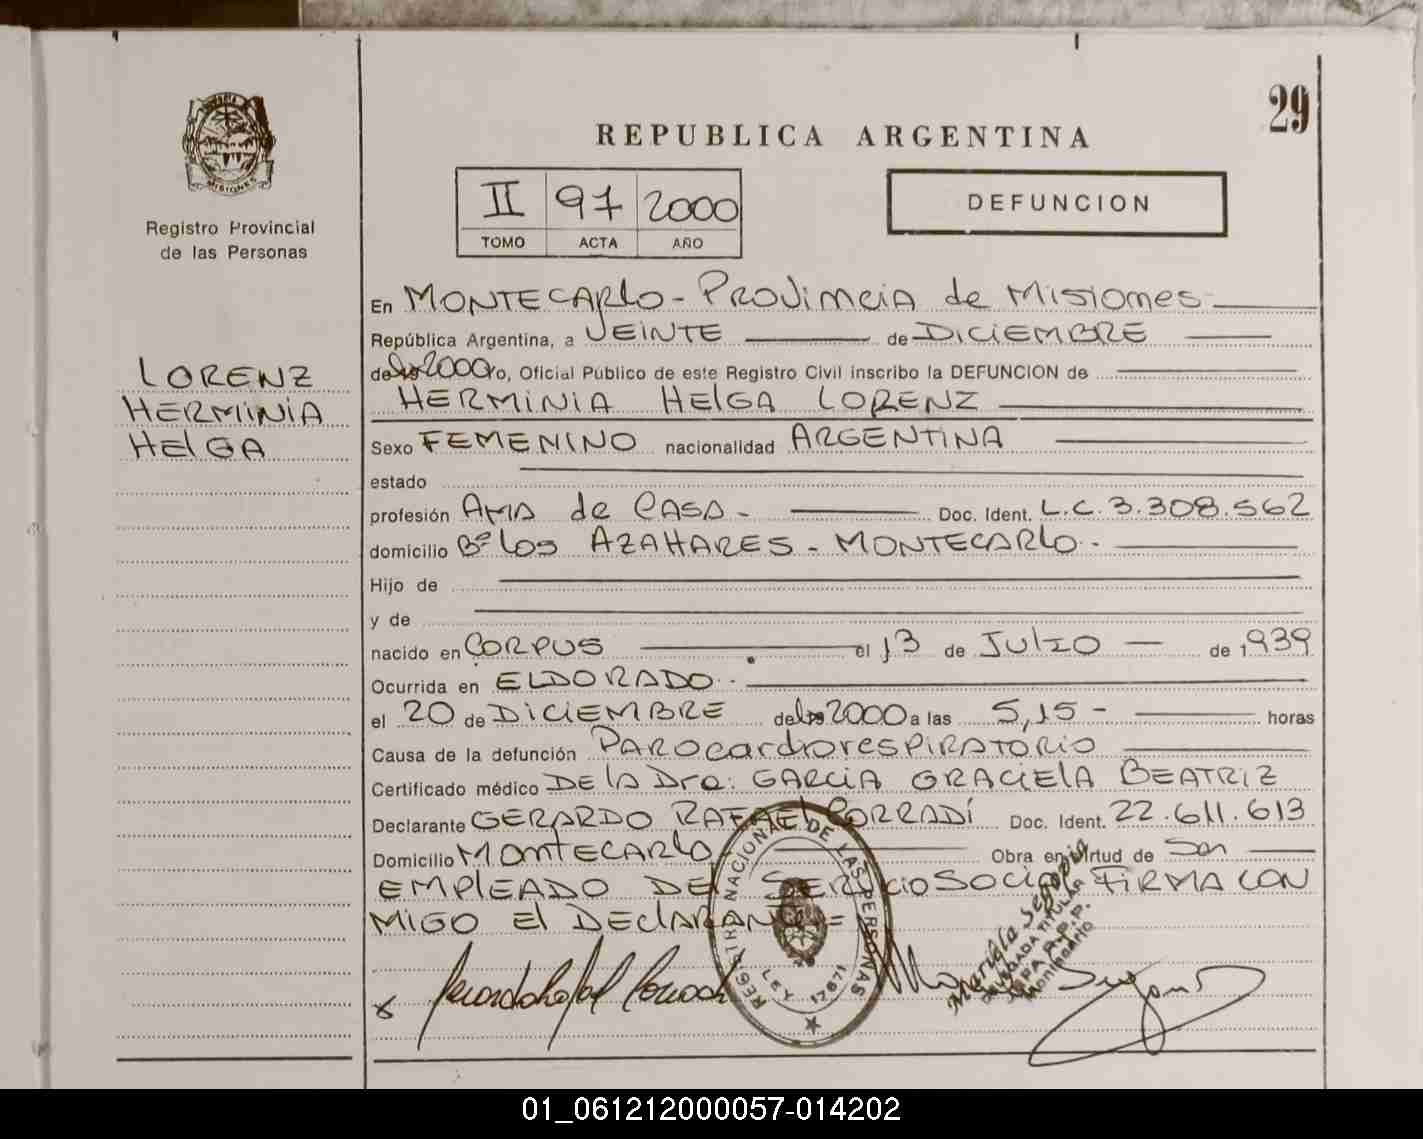 29
REPUBLICA ARGENTINA
II 97 2000
TOMO ACTA AÑO
DEFUNCION
MISIONES
Registro Provincial
de las Personas
LORENZ
HERMINIA
HElGA
En MONTECARlO - PROVINCIA de MISIONES -
República Argentina, a VEINTE de DICIEMBRE
de 2000 yo, Oficial Público de este Registro Civil inscribo la DEFUNCION de
HERMINIA HElGA LORENZ
Sexo FEMENINO nacionalidad ARGENTINA
estado
profesión AMA de CASA - Doc. Ident. L.C. 3.308.562
domicilio Bº los AZAHARES - MONTECARlO -
Hijo de
y de
nacido en CORPUS el 13 de JULIO de 1939
Ocurrida en ELDORADO -
el 20 de DICIEMBRE del 2000 a las 5,15 - horas
Causa de la defunción PAROcardiorespiratorio
Certificado médico DE la Dra: GARCIA GRACIElA BEATRIZ
Declarante GERARDO RAFAEl CORRADÍ Doc. Ident. 22.611.613
Domicilio MONTECARlO Obra en virtud de Ser
EMPlEADO DEl SERVicio SOCIAl FIRMA CON
MIGO El DEClARANTE =
REGISTRO NACIONAL DE LAS PERSONAS
LEY 17671
Mariela Segovia
DELEGADA TITULAR
JEFA R.P.P.
Montecarlo
01_061212000057-014202